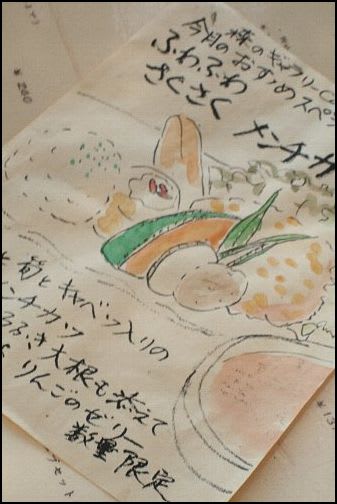 森のギャラリーCa
今月のおすすめスペシ
ふわふわ
さくさく
メンチカ
筍とキャベツ入りの
ンチカツ
ふろふき大根も添えて
りんごのゼリー
数量限定
¥200
セット